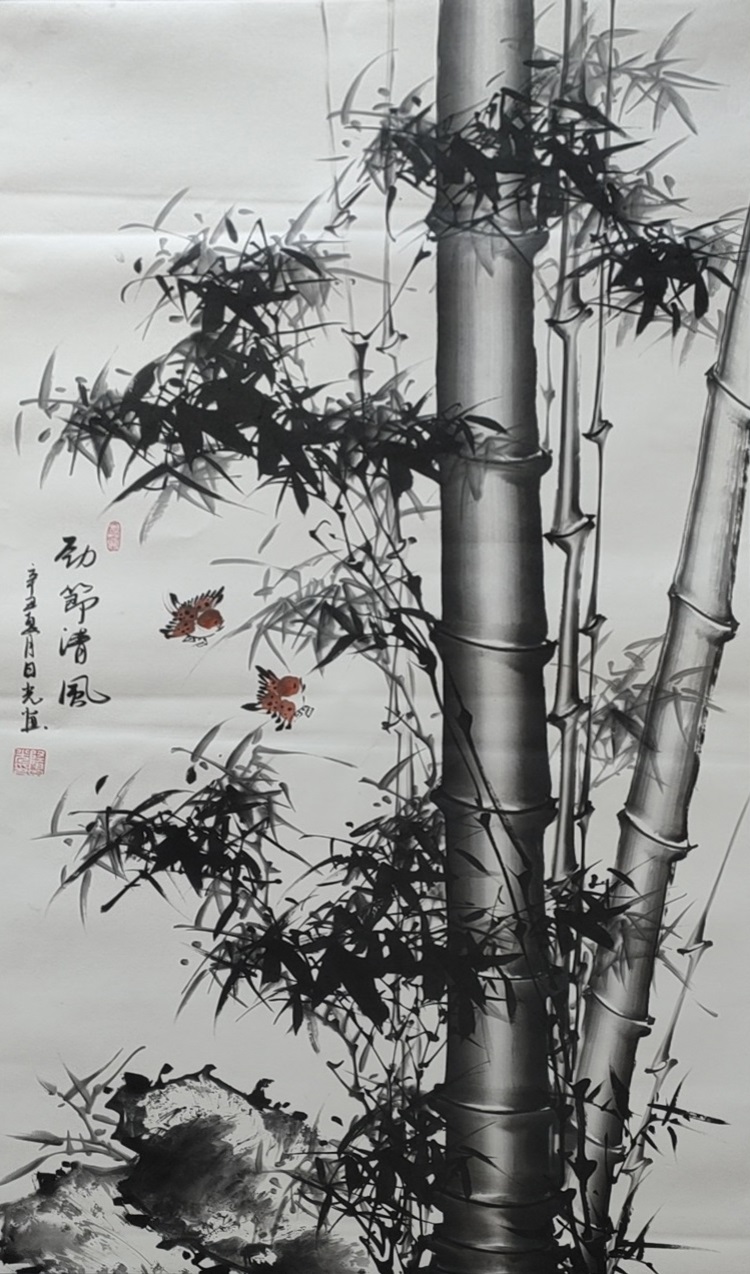 劲節清風
辛丑夏月日光